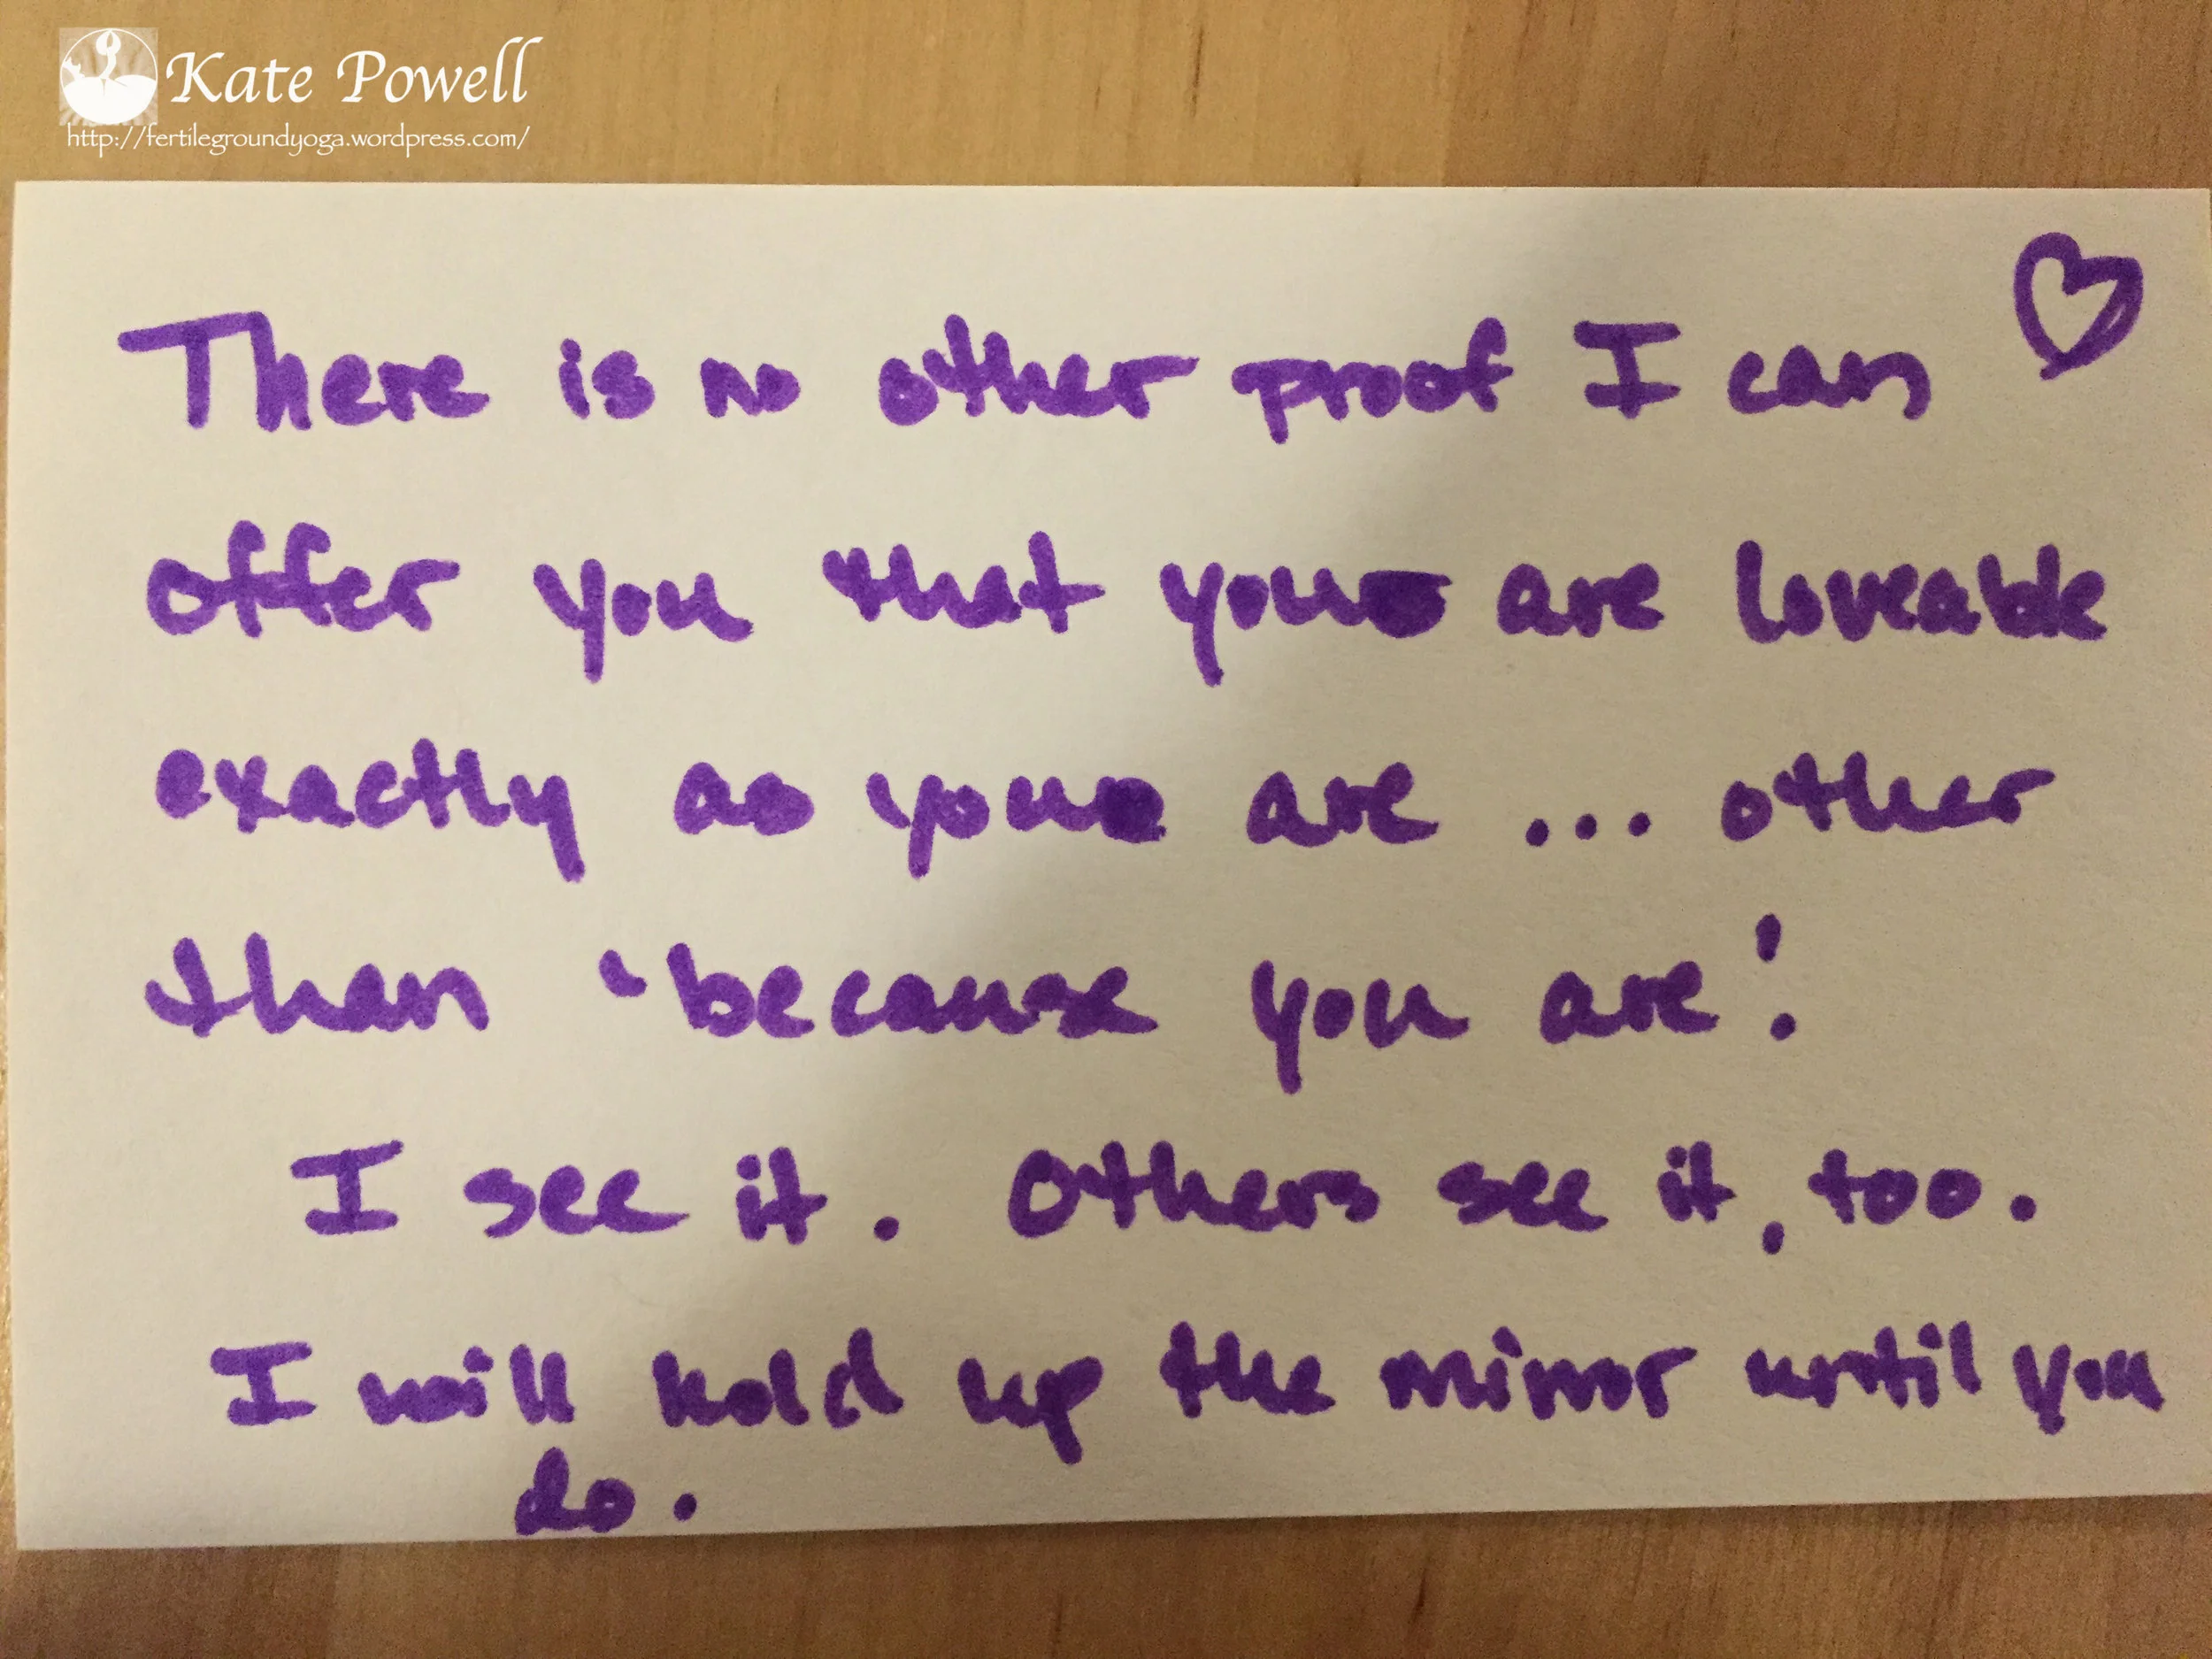 Kate Powell
http://fertilegroundyoga.wordpress.com/
There is no other proof I can
offer you that you are loveable
exactly as you are ... other
than 'because you are'.
I see it. Others see it, too.
I will hold up the mirror until you
do.